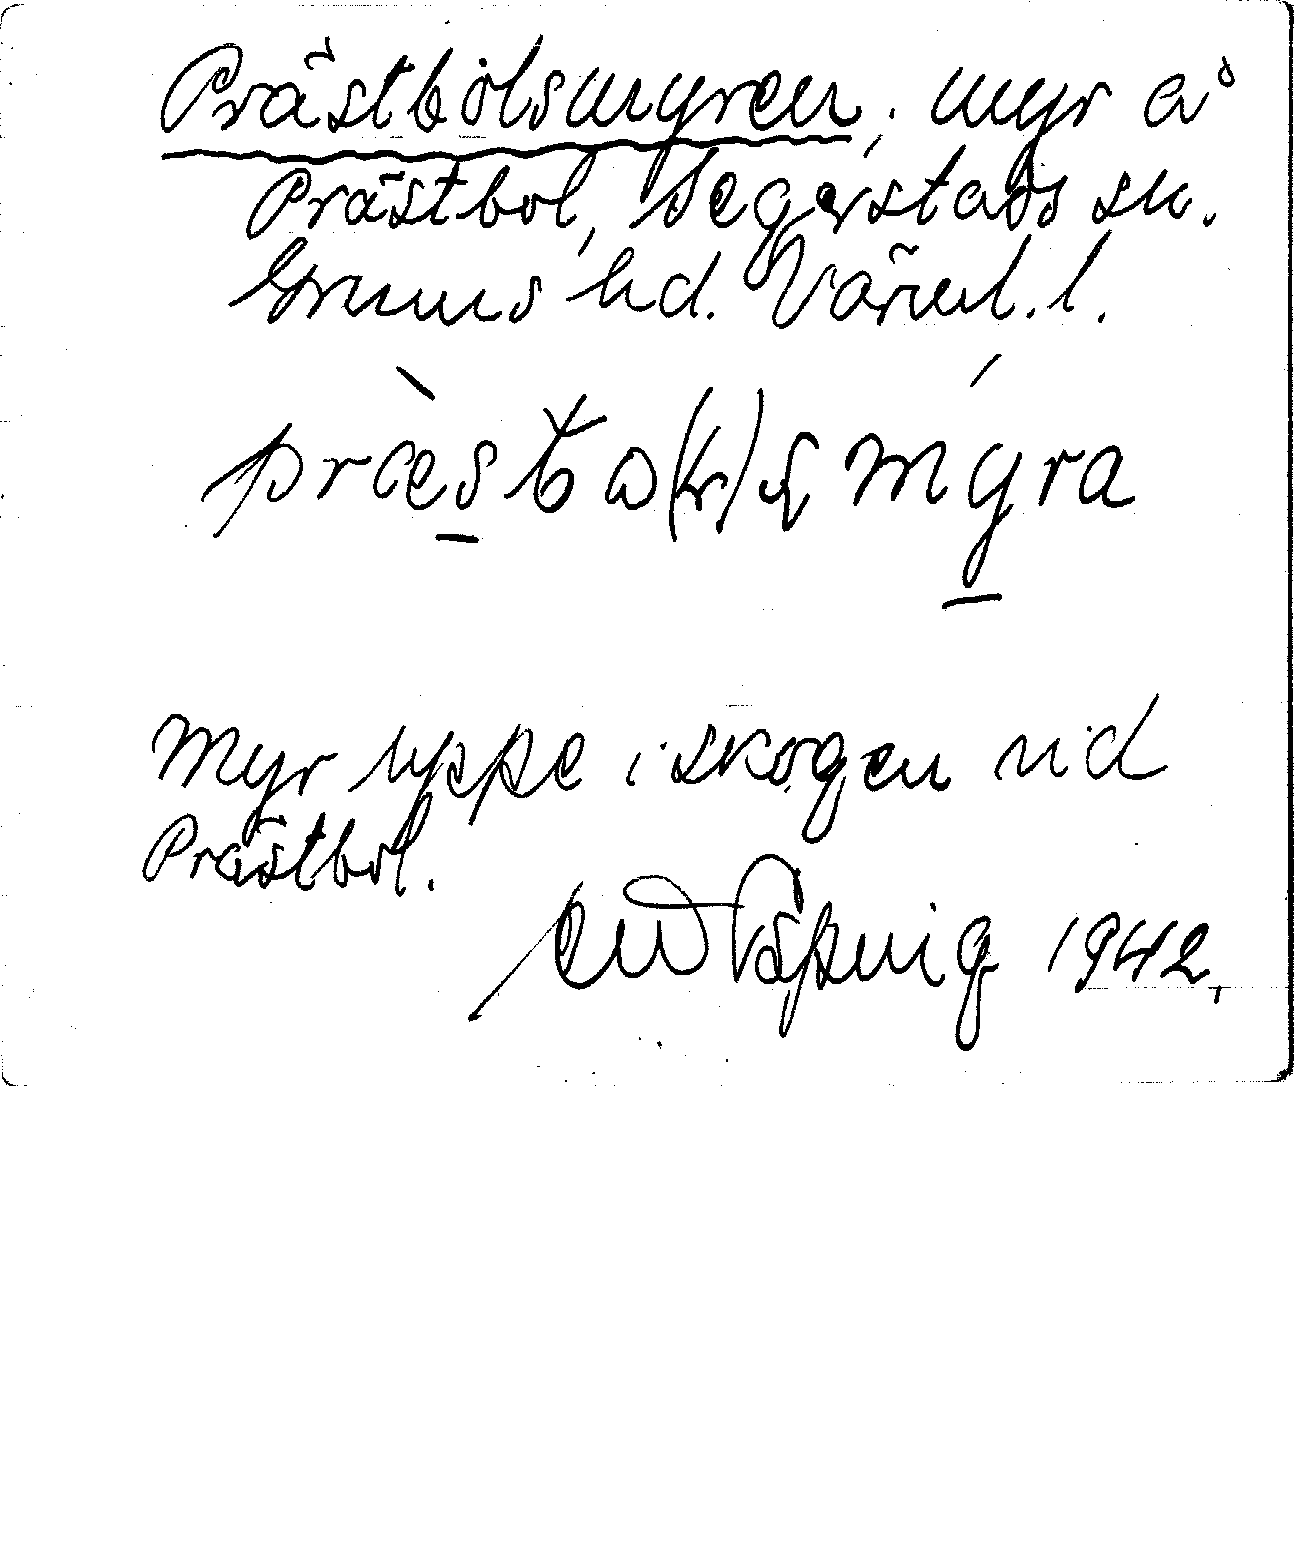 Prästbolsmyren, myr å
Prästbol, Segerstads sn.
Grums hd. Värml. l.
Myr uppe i skogen vid
Prästbol.
1942.